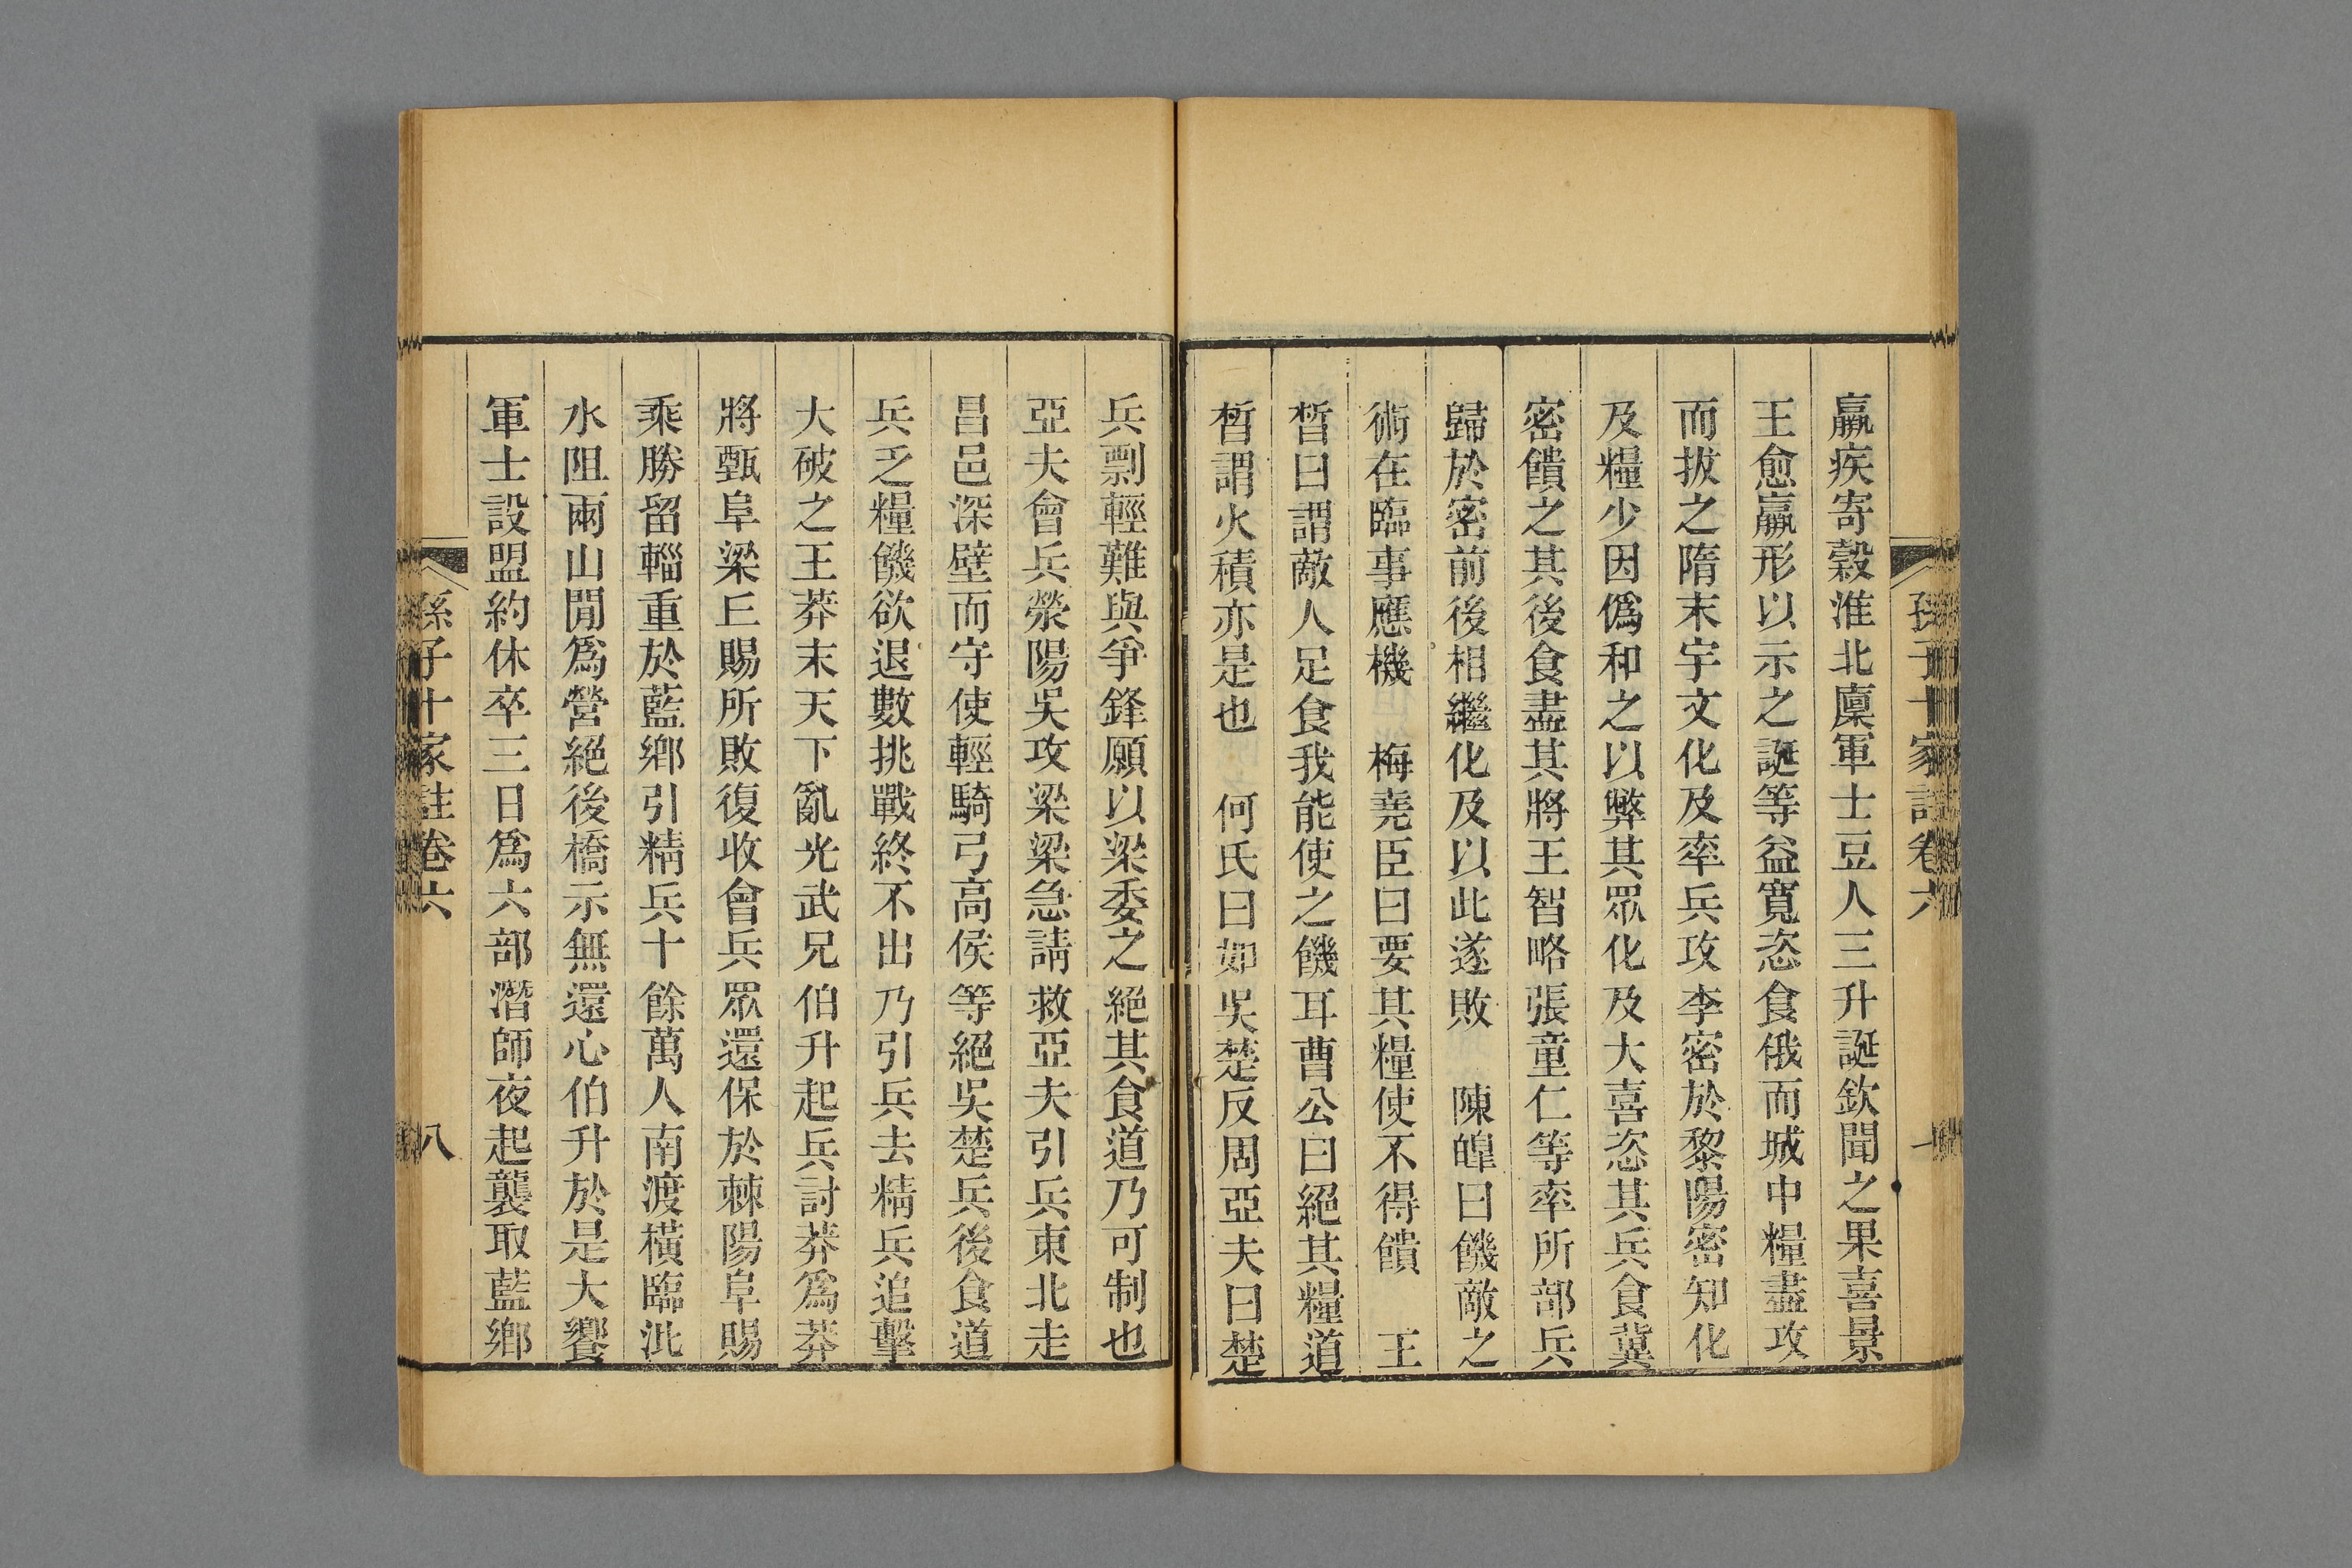 孫子十家註卷六
羸疾寄穀淮北廩軍士豆人三升誕欽聞之果喜景
王愈羸形以示之誕等益寬恣食俄而城中糧盡攻
而拔之隋末宇文化及率兵攻李密於黎陽密知化
及糧少因僞和之以弊其眾化及大喜恣其兵食冀
密饋之其後食盡其將王智略張童仁等率所部兵
歸於密前後相繼化及以此遂敗　陳皥曰饑敵之
術在臨事應機　梅堯臣曰要其糧使不得饋　王
晳曰謂敵人足食我能使之饑耳曹公曰絕其糧道
晳謂火積亦是也　何氏曰如吳楚反周亞夫曰楚
兵剽輕難與爭鋒願以梁委之絕其食道乃可制也
亞夫會兵滎陽吳攻梁梁急請救亞夫引兵東北走
昌邑深壁而守使輕騎弓高侯等絕吳楚兵後食道
兵乏糧饑欲退數挑戰終不出乃引兵去精兵追擊
大破之王莽末天下亂光武兄伯升起兵討莽爲莽
將甄阜梁丘賜所敗復收會兵眾還保於棘陽阜賜
乘勝留輜重於藍鄉引精兵十餘萬人南渡橫臨沘
水阻兩山閒爲營絕後橋示無還心伯升於是大饗
軍士設盟約休卒三日爲六部潛師夜起襲取藍鄉
孫子十家註卷六
八